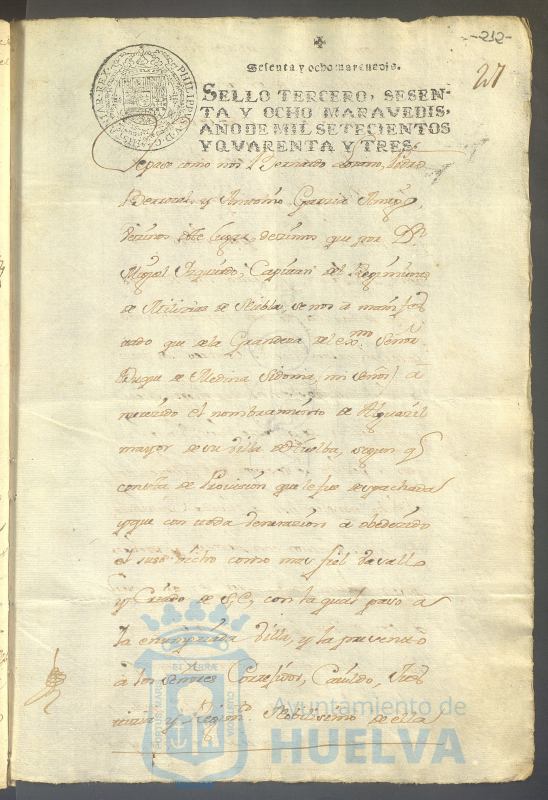 -212-
27
Sesenta y ocho maravedis.
SELLO TERCERO, SESEN-
TA Y OCHO MARAVEDIS,
AÑO DE MIL SETECIENTOS
Y QVARENTA Y TRES.
Sepase como nos Bernardo
Berrocal, y Antonio Garcia
vezinos deste lugar dezimos que por Dn
Miguel Izquierdo, Capitan del Regimiento
de Milizias de Niebla, se nos a manifes
tado que de la Grandeza del exmo Señor
Duque de Medina Sidonia, mi señor a
merezido el nombramiento de Alguazil
mayor de su villa de Huelba, segun qe
consta de Provision que le fue despachada
y que con toda venerazion a obedezido
el suso dicho como mas fiel vasallo
y Criado de S,E, con la qual paso a
la enunziada villa, y la presento
a los señores Correxidor, Cavildo, Jus
tizia y Regimto Nobilisimo de ella
Ayuntamiento de
HUELVA